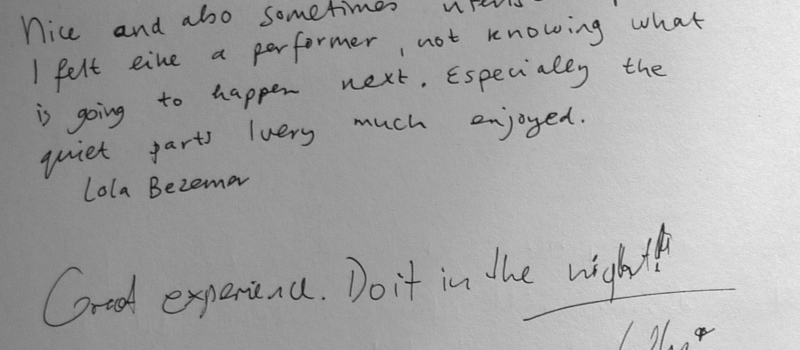 Nice and also sometimes
I felt like a performer, not knowing what
is going to happen next. Especially the
quiet parts I very much enjoyed.
Lola Bezemer
Great experience. Do it in the night!!